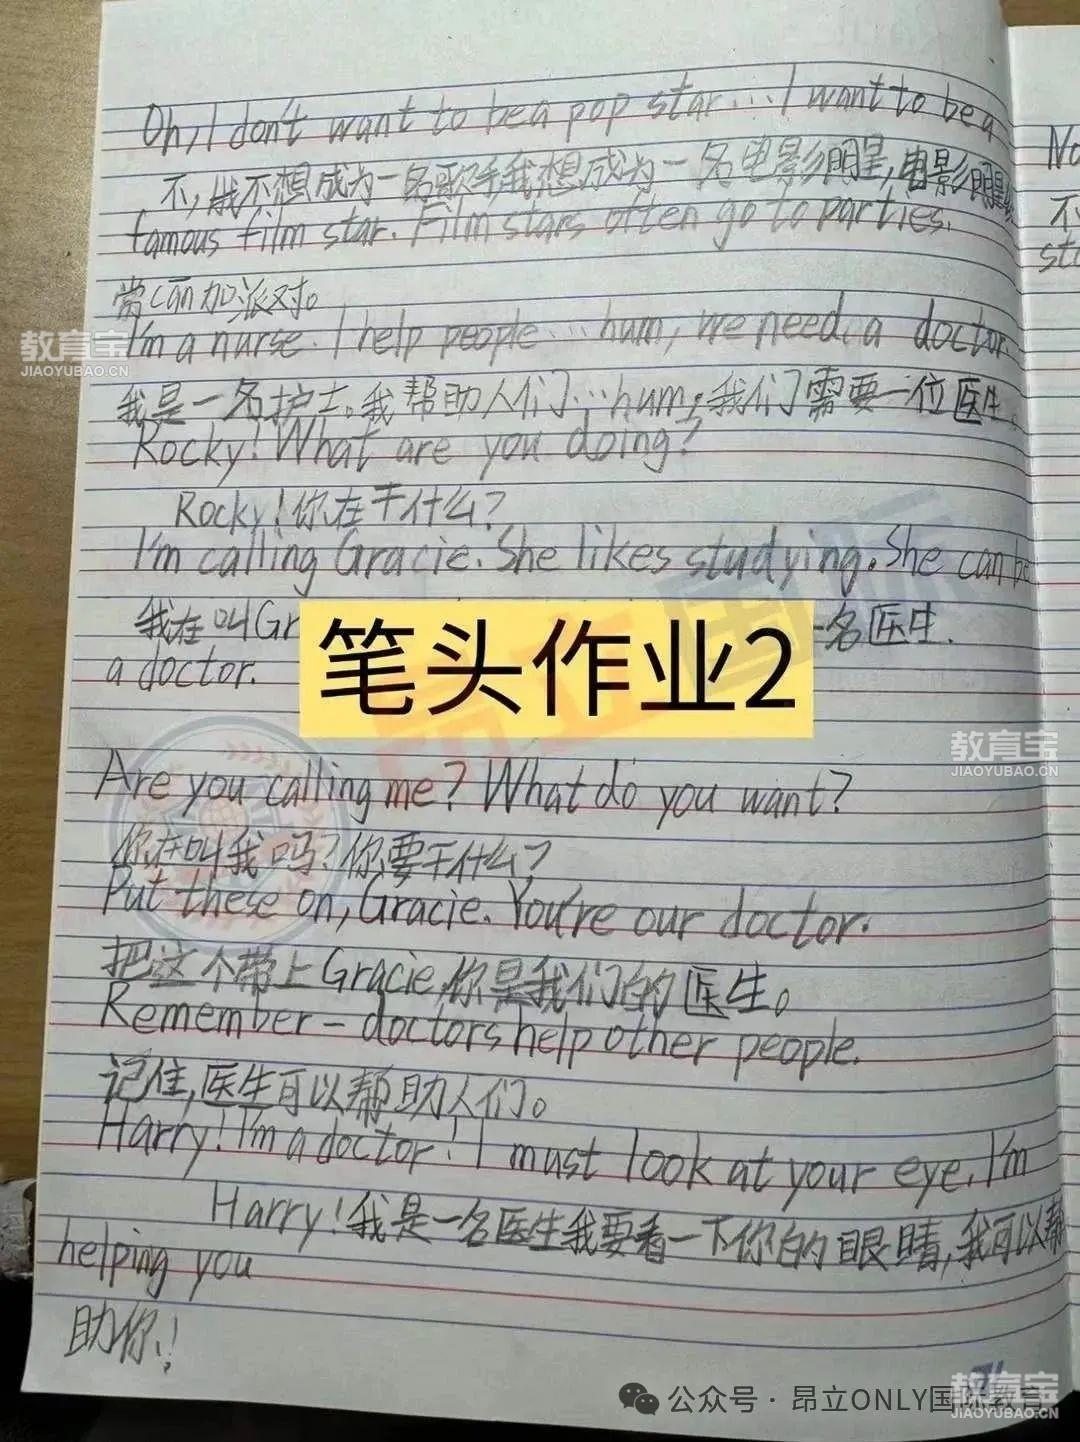 Oh, I don't want to be a pop star... I want to be a
不,我不想成为一名歌手我想成为一名电影明星,电影明星
famous film star. Film stars often go to parties.
常can加派对。
I'm a nurse. I help people...hum, we need a doctor.
我是一名护士。我帮助人们...hum,我们需要一位医生。
Rocky! What are you doing?
Rocky!你在干什么?
I'm calling Gracie. She likes studying. She can be
我在叫Gr
一名医生.
笔头作业2
a doctor.
Are you calling me? What do you want?
你在叫我吗?你要干什么?
Put these on, Gracie. You're our doctor.
把这个带上Gracie,你是我们的医生。
Remember - doctors help other people.
记住,医生可以帮助人们。
Harry! I'm a doctor! I must look at your eye. I'm
Harry!我是一名医生我要看一下你的眼睛,我可以帮
helping you
助你!
No
不
st
教育宝
JIAOYUBAO.CN
教育宝
JIAOYUBAO.CN
公众号·昂立ONLY国际教育
教育宝
JIAOYUBAO.CN